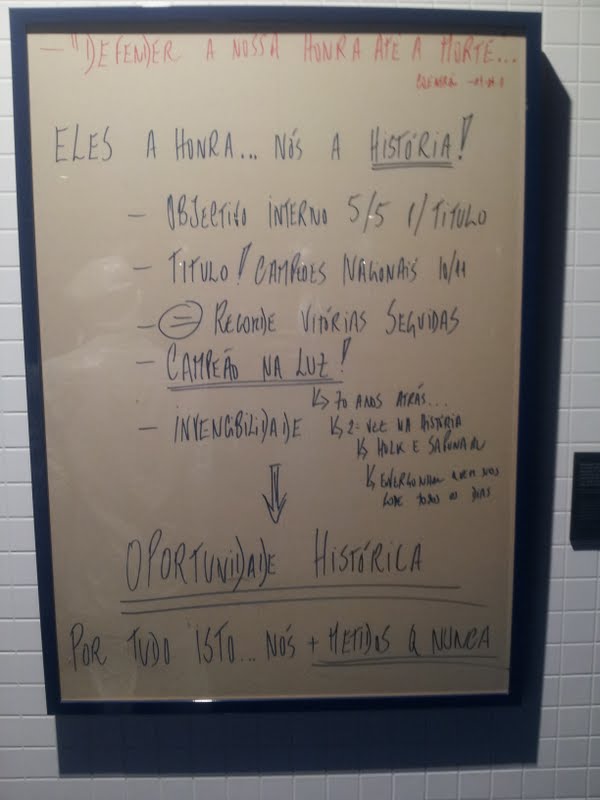 — "DEFENDER A NOSSA HONRA ATÉ A MORTE...
ELES A HONRA... NÓS A HISTÓRIA!
— OBJECTIVO INTERNO 5/5 P/ TITULO
— TITULO! CAMPEÕES NACIONAIS 10/11
— = RECORDE VITÓRIAS SEGUIDAS
— CAMPEÃO NA LUZ!
↳ 70 ANOS ATRÁS...
— INVENCIBILIDADE ↳ 2ª VEZ NA HISTÓRIA
↳ HULK E SAPUNARU
↳ ENVERGONHAR QUEM NOS
TODOS OS DIAS
OPORTUNIDADE HISTÓRICA
POR TUDO ISTO... NÓS + METIDOS Q NUNCA